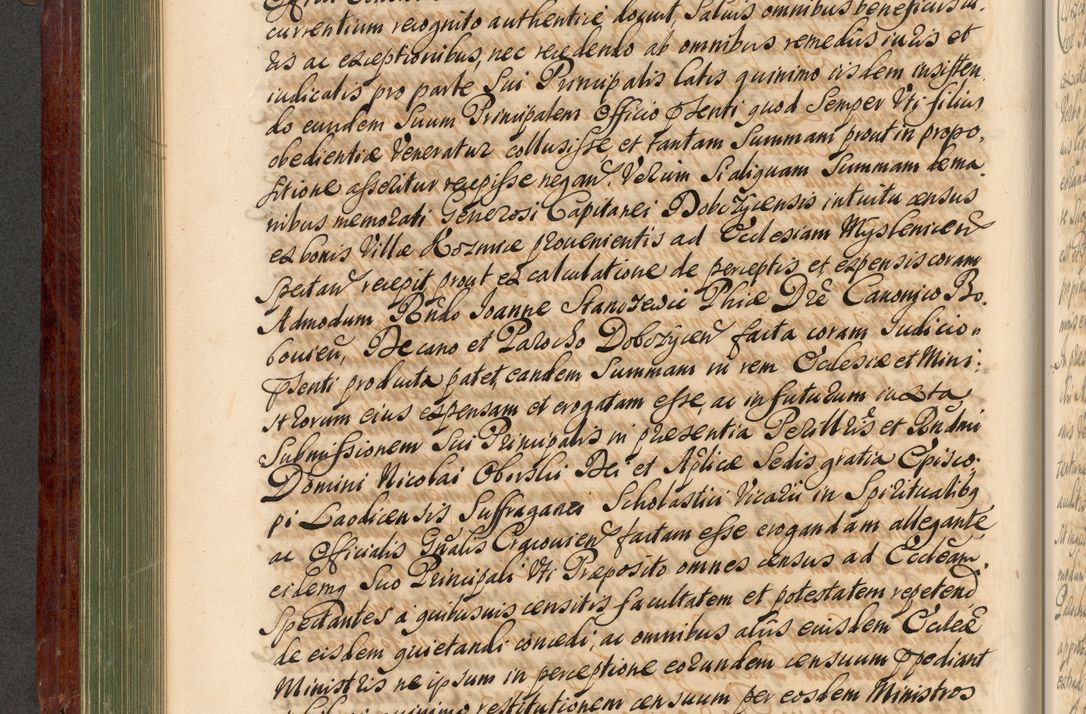 currentium recognito authentice docuit Salvis omnibus beneficiis iu-
ris ac exceptionibus, nec recedendo ab omnibus remediis iuris et
iudicatis pro parte Sui Principalis latis quinimo iisdem insisten-
do eundem Suum Principalem Officio pSenti quod Semper Uti filius
obedientiæ Veneratur collusisse et tantam Summam prout in propo-
sitione asseritur recepisse negan. Verum Si aliquam Summam de ma-
nibus memorati Generosi Capitanei Dobczycensis intuitu census
ex bonis Villæ Koznice provenientis ad Ecclesiam Myslenicen
Spectan recepit prout ex calculatione de perceptis et expensis coram
Admodum Rndo Joanne Starorzewic Phiæ Dre Canonico Bo-
bovien, Decano et Parocho Dobczycen facta coram Iudicio
pSenti producta patet, eandem Summam in rem Ecclesiæ et Mini-
strorum eius expensam et erogatam esse, ac in futurum iuxta
Submissionem Sui Principalis in præsentia Perillris et Rndmi
Domini Nicolai Oborski Dei et Aplicæ Sedis gratia Episco-
pi Laodicensis Suffraganei Scholastici Vicarii in Spiritualibq
ac Officialis Gnalis Cracovien factam esse erogandam allegante
eidemq Suo Principali Uti Præposito omnes census ad Ecclesiam
Spectantes a quibusvis censitis facultatem et potestatem repetend
de eisdem quietandi concedi, ac omnibus aliis eiusdem Ecclesiæ
Ministris ne ipsum in perceptione eorundem censuum pPediant
quinimo restitutionem censuum per eosdem Ministros